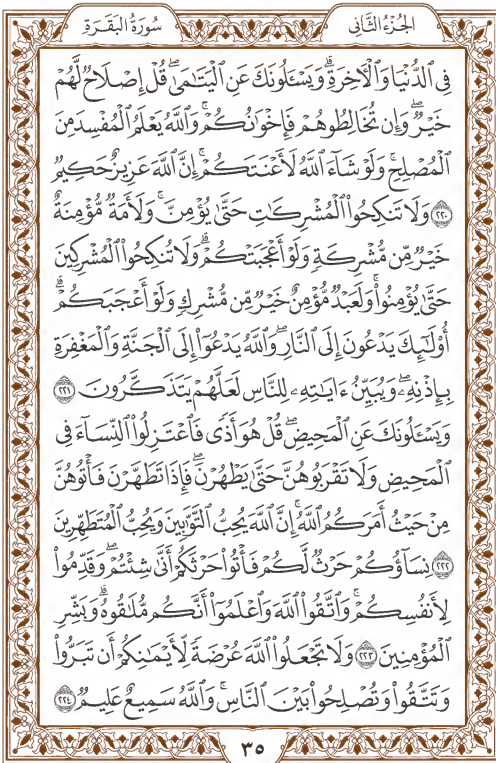 سُورَةُ البَقَرَةِ
الجُزْءُ الثَّانِي
فِي ٱلدُّنْيَا وَٱلْءَاخِرَةِۗ وَيَسْـَٔلُونَكَ عَنِ ٱلْيَتَٰمَىٰۖ قُلْ إِصْلَاحٌ لَّهُمْ
خَيْرٌۖ وَإِن تُخَالِطُوهُمْ فَإِخْوَٰنُكُمْۚ وَٱللَّهُ يَعْلَمُ ٱلْمُفْسِدَ مِنَ
ٱلْمُصْلِحِۚ وَلَوْ شَآءَ ٱللَّهُ لَأَعْنَتَكُمْۚ إِنَّ ٱللَّهَ عَزِيزٌ حَكِيمٌ
٢٢٠ وَلَا تَنكِحُوا۟ ٱلْمُشْرِكَٰتِ حَتَّىٰ يُؤْمِنَّۚ وَلَأَمَةٌ مُّؤْمِنَةٌ
خَيْرٌ مِّن مُّشْرِكَةٍ وَلَوْ أَعْجَبَتْكُمْۗ وَلَا تُنكِحُوا۟ ٱلْمُشْرِكِينَ
حَتَّىٰ يُؤْمِنُوا۟ۚ وَلَعَبْدٌ مُّؤْمِنٌ خَيْرٌ مِّن مُّشْرِكٍ وَلَوْ أَعْجَبَكُمْۗ
أُو۟لَٰٓئِكَ يَدْعُونَ إِلَى ٱلنَّارِۖ وَٱللَّهُ يَدْعُوٓا۟ إِلَى ٱلْجَنَّةِ وَٱلْمَغْفِرَةِ
بِإِذْنِهِۦۖ وَيُبَيِّنُ ءَايَٰتِهِۦ لِلنَّاسِ لَعَلَّهُمْ يَتَذَكَّرُونَ ٢٢١
وَيَسْـَٔلُونَكَ عَنِ ٱلْمَحِيضِۖ قُلْ هُوَ أَذًى فَٱعْتَزِلُوا۟ ٱلنِّسَآءَ فِي
ٱلْمَحِيضِ وَلَا تَقْرَبُوهُنَّ حَتَّىٰ يَطْهُرْنَۖ فَإِذَا تَطَهَّرْنَ فَأْتُوهُنَّ
مِنْ حَيْثُ أَمَرَكُمُ ٱللَّهُۚ إِنَّ ٱللَّهَ يُحِبُّ ٱلتَّوَّٰبِينَ وَيُحِبُّ ٱلْمُتَطَهِّرِينَ
٢٢٢ نِسَآؤُكُمْ حَرْثٌ لَّكُمْ فَأْتُوا۟ حَرْثَكُمْ أَنَّىٰ شِئْتُمْۖ وَقَدِّمُوا۟
لِأَنفُسِكُمْۚ وَٱتَّقُوا۟ ٱللَّهَ وَٱعْلَمُوٓا۟ أَنَّكُم مُّلَٰقُوهُۗ وَبَشِّرِ
ٱلْمُؤْمِنِينَ ٢٢٣ وَلَا تَجْعَلُوا۟ ٱللَّهَ عُرْضَةً لِّأَيْمَٰنِكُمْ أَن تَبَرُّوا۟
وَتَتَّقُوا۟ وَتُصْلِحُوا۟ بَيْنَ ٱلنَّاسِۚ وَٱللَّهُ سَمِيعٌ عَلِيمٌ ٢٢٤
٣٥